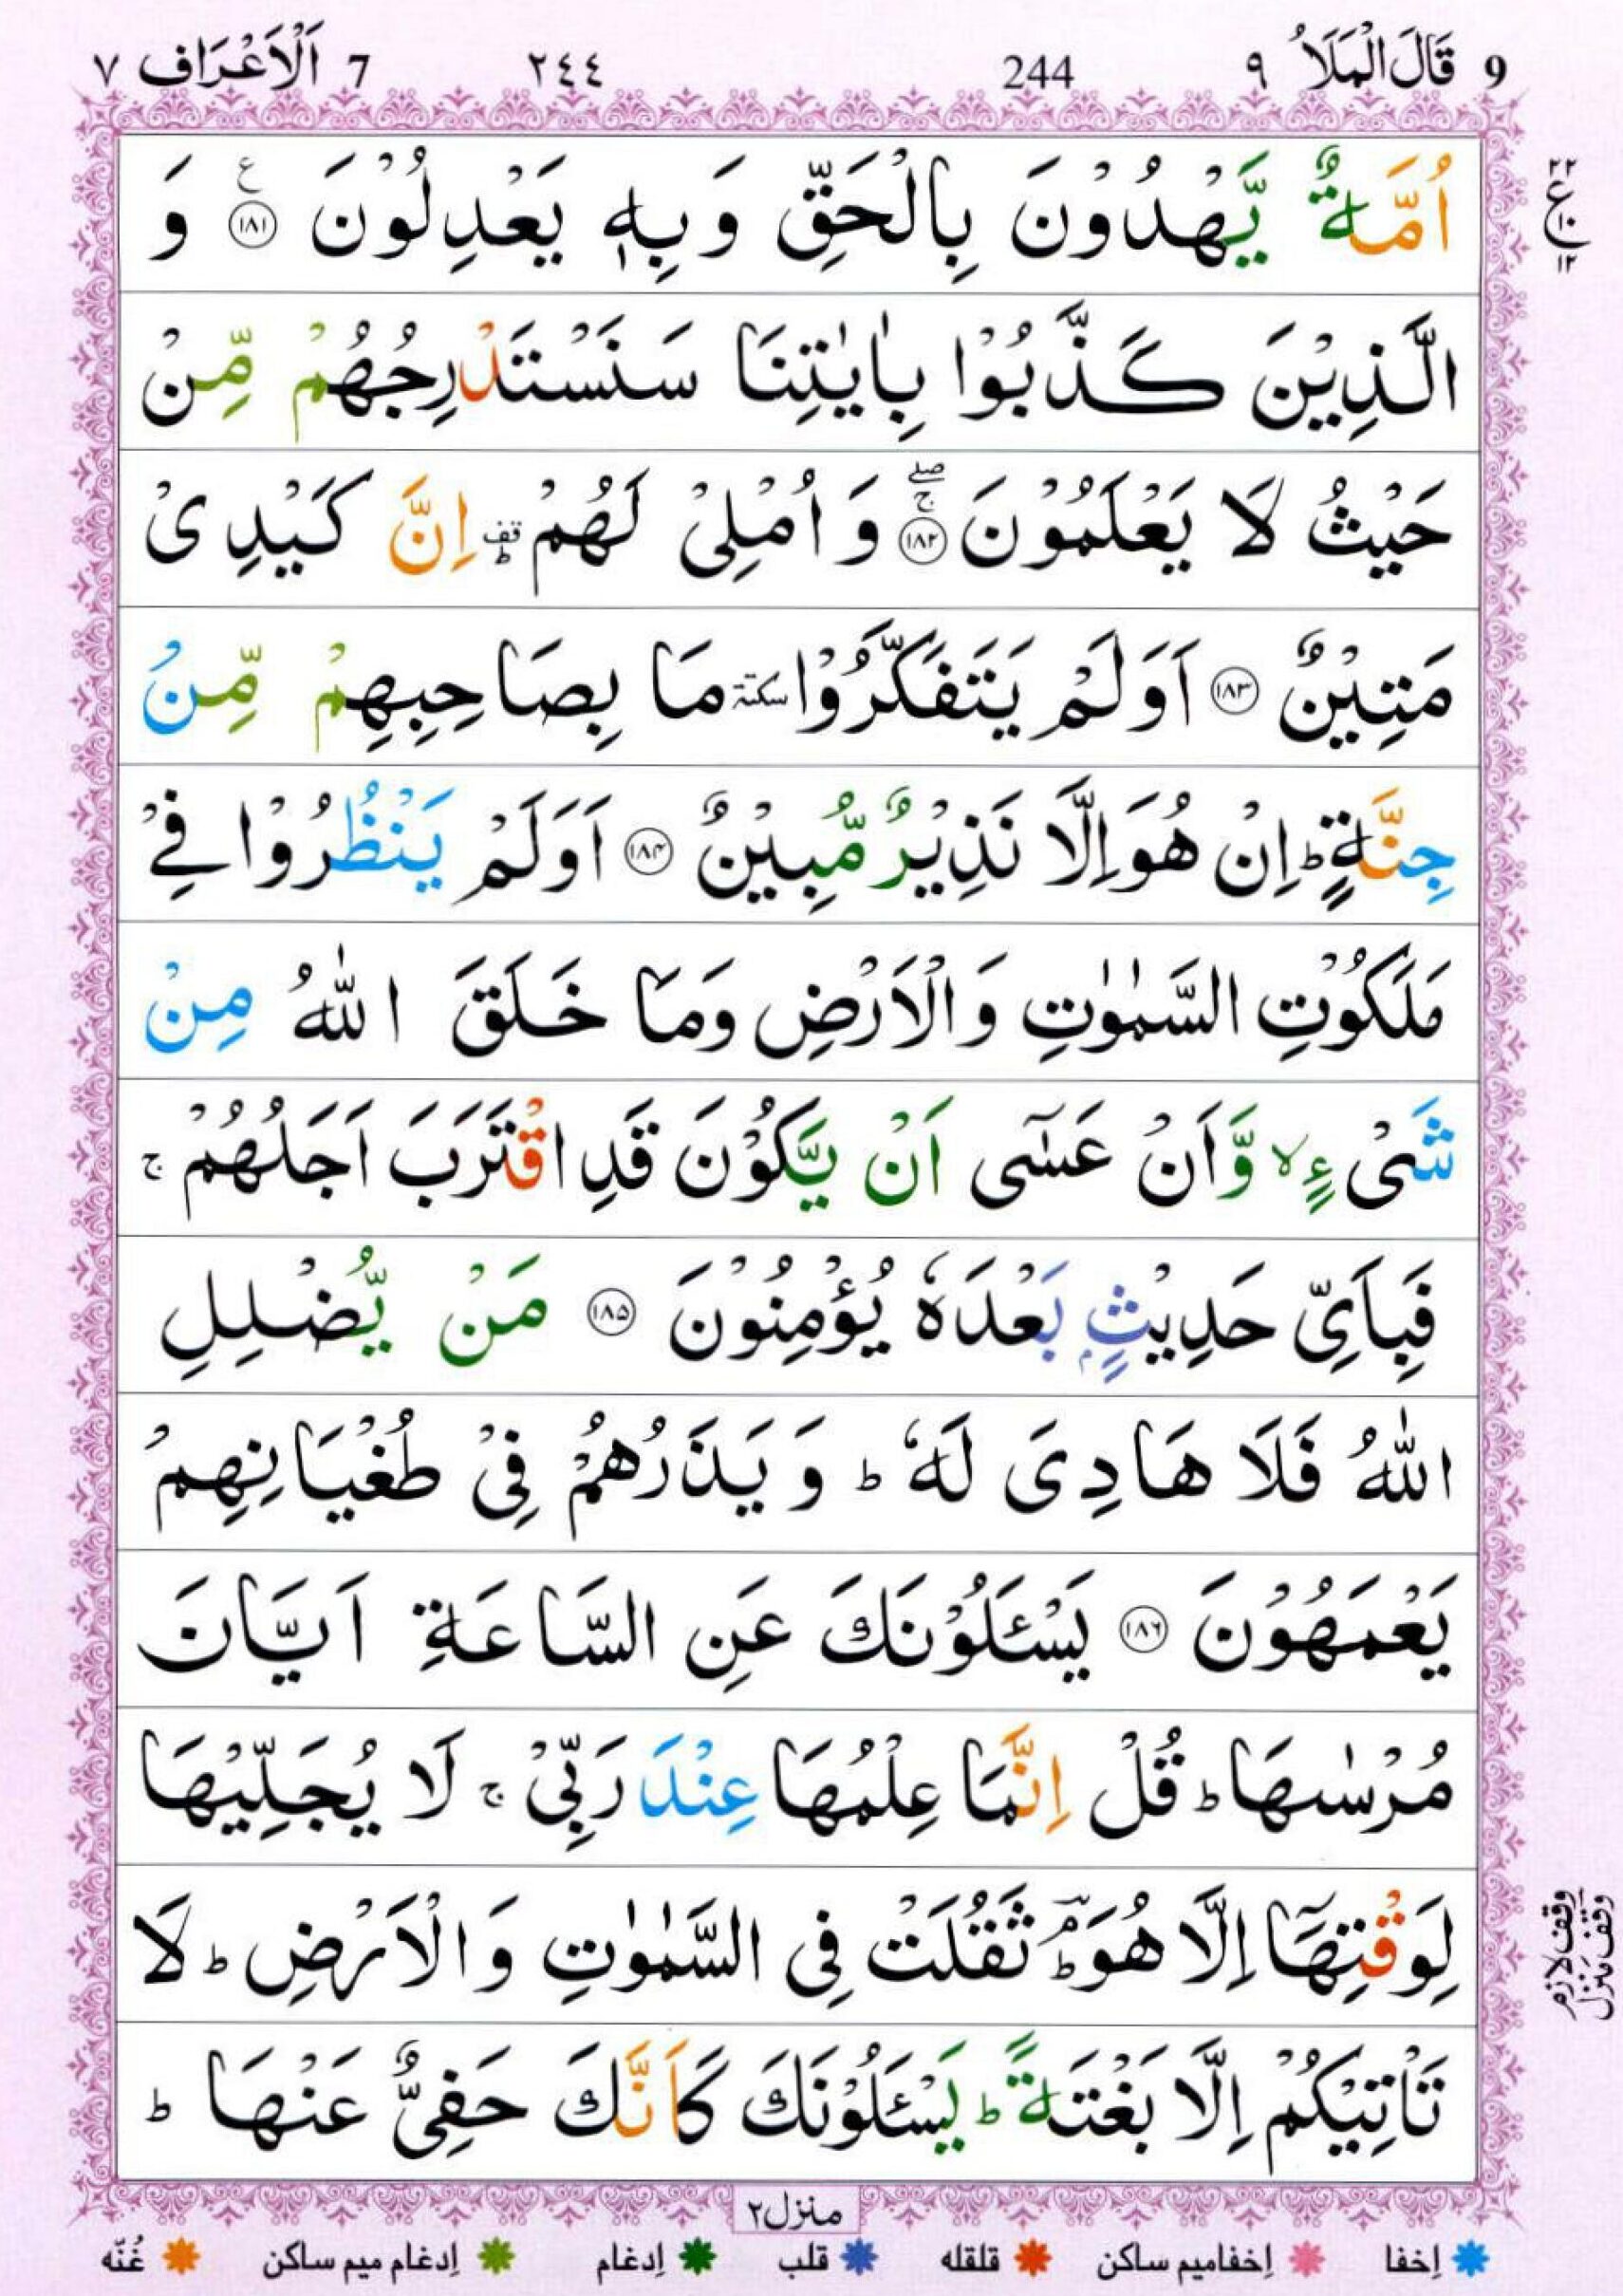 9 قَالَ الْمَلَاُ ٩ 244 ٢٤٤ 7 اَلْاَعْرَاف ٧
اُمَّةٌ يَّهْدُوْنَ بِالْحَقِّ وَبِهٖ يَعْدِلُوْنَ ع ١٨١ وَ
٢٢ ع ١٠ ١٢
الَّذِيْنَ كَذَّبُوْا بِاٰيٰتِنَا سَنَسْتَدْرِجُهُمْ مِّنْ
حَيْثُ لَا يَعْلَمُوْنَ ۖۚ ١٨٢ وَاُمْلِىْ لَهُمْ قف ؕ اِنَّ كَيْدِىْ
مَتِيْنٌ ١٨٣ اَوَلَمْ يَتَفَكَّرُوْا سكتة مَا بِصَاحِبِهِمْ مِّنْ
جِنَّةٍ ؕ اِنْ هُوَ اِلَّا نَذِيْرٌ مُّبِيْنٌ ١٨٤ اَوَلَمْ يَنْظُرُوْا فِىْ
مَلَكُوْتِ السَّمٰوٰتِ وَالْاَرْضِ وَمَا خَلَقَ اللّٰهُ مِنْ
شَىْءٍ ۙ وَّاَنْ عَسٰٓى اَنْ يَّكُوْنَ قَدِ اقْتَرَبَ اَجَلُهُمْ ۚ
فَبِاَىِّ حَدِيْثٍۭ بَعْدَهٗ يُؤْمِنُوْنَ ١٨٥ مَنْ يُّضْلِلِ
اللّٰهُ فَلَا هَادِىَ لَهٗ ؕ وَيَذَرُهُمْ فِىْ طُغْيَانِهِمْ
يَعْمَهُوْنَ ١٨٦ يَسْـَٔلُوْنَكَ عَنِ السَّاعَةِ اَيَّانَ
مُرْسٰىهَا ؕ قُلْ اِنَّمَا عِلْمُهَا عِنْدَ رَبِّىْ ۚ لَا يُجَلِّيْهَا
لِوَقْتِهَآ اِلَّا هُوَ ؕۘ ثَقُلَتْ فِى السَّمٰوٰتِ وَالْاَرْضِ ؕ لَا
وقف لازم
وقف منزل
تَاْتِيْكُمْ اِلَّا بَغْتَةً ؕ يَسْـَٔلُوْنَكَ كَاَنَّكَ حَفِىٌّ عَنْهَا ؕ
منزل ٢
إخفا إخفا ميم ساكن قلقله قلب إدغام إدغام ميم ساكن غُنّه